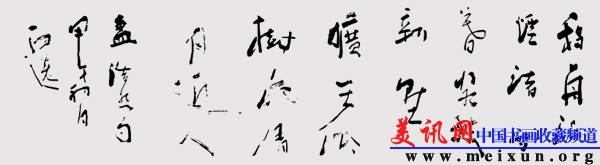 移舟泊
煙渚日
暮客愁
新野
曠天低
樹江清
月近人
孟浩然句
甲午
美讯网 中国书画收藏频道
www.meixun.org